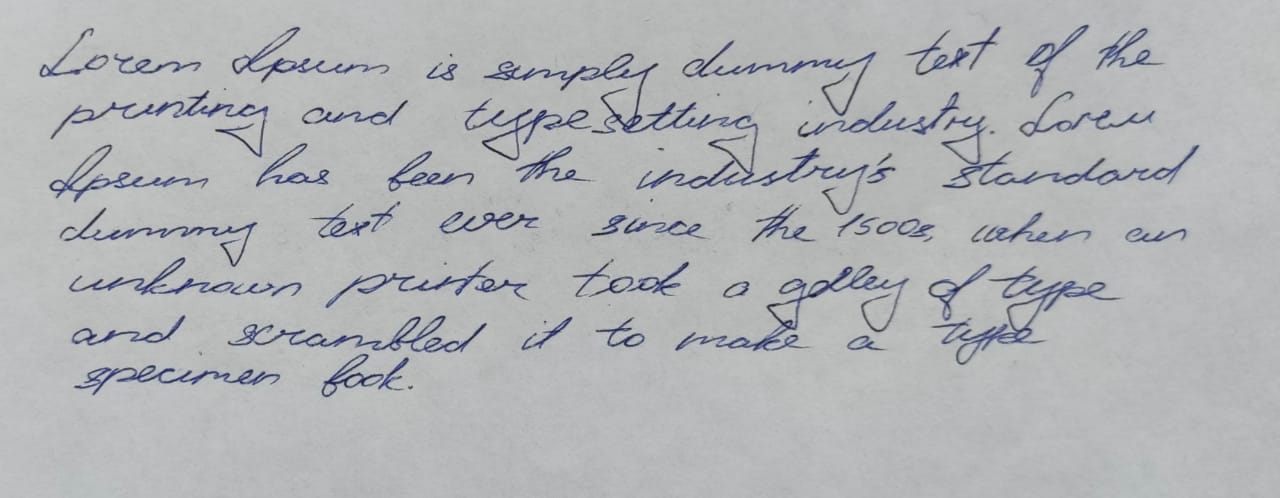 Lorem Ipsum is simply dummy text of the
printing and typesetting industry. Lorem
Ipsum has been the industry's standard
dummy text ever since the 1500s, when an
unknown printer took a galley of type
and scrambled it to make a type
specimen book.